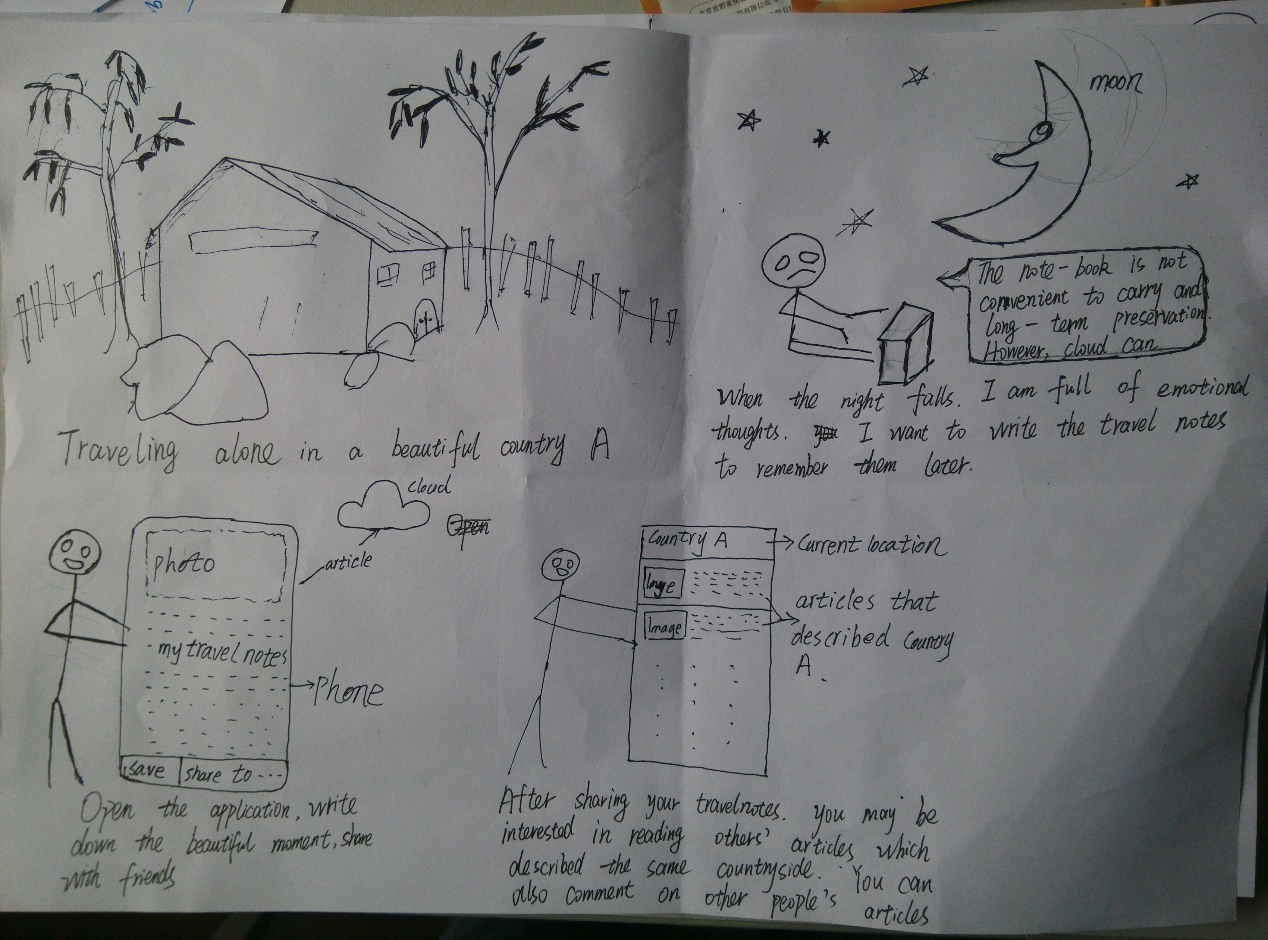 moon
The note-book is not
convenient to carry and
long-term preservation.
However, cloud can
Traveling alone in a beautiful country A
When the night falls. I am full of emotional
thoughts. I want to write the travel notes
to remember them later.
cloud
article
photo
my travel notes
Phone
save
share to ---
Open the application, write
down the beautiful moment, share
with friends
Country A
Current location
Image
Image
articles that
described country
A.
After sharing your travelnotes. you may be
interested in reading others' articles which
described the same countryside. You can
also comment on other people's articles